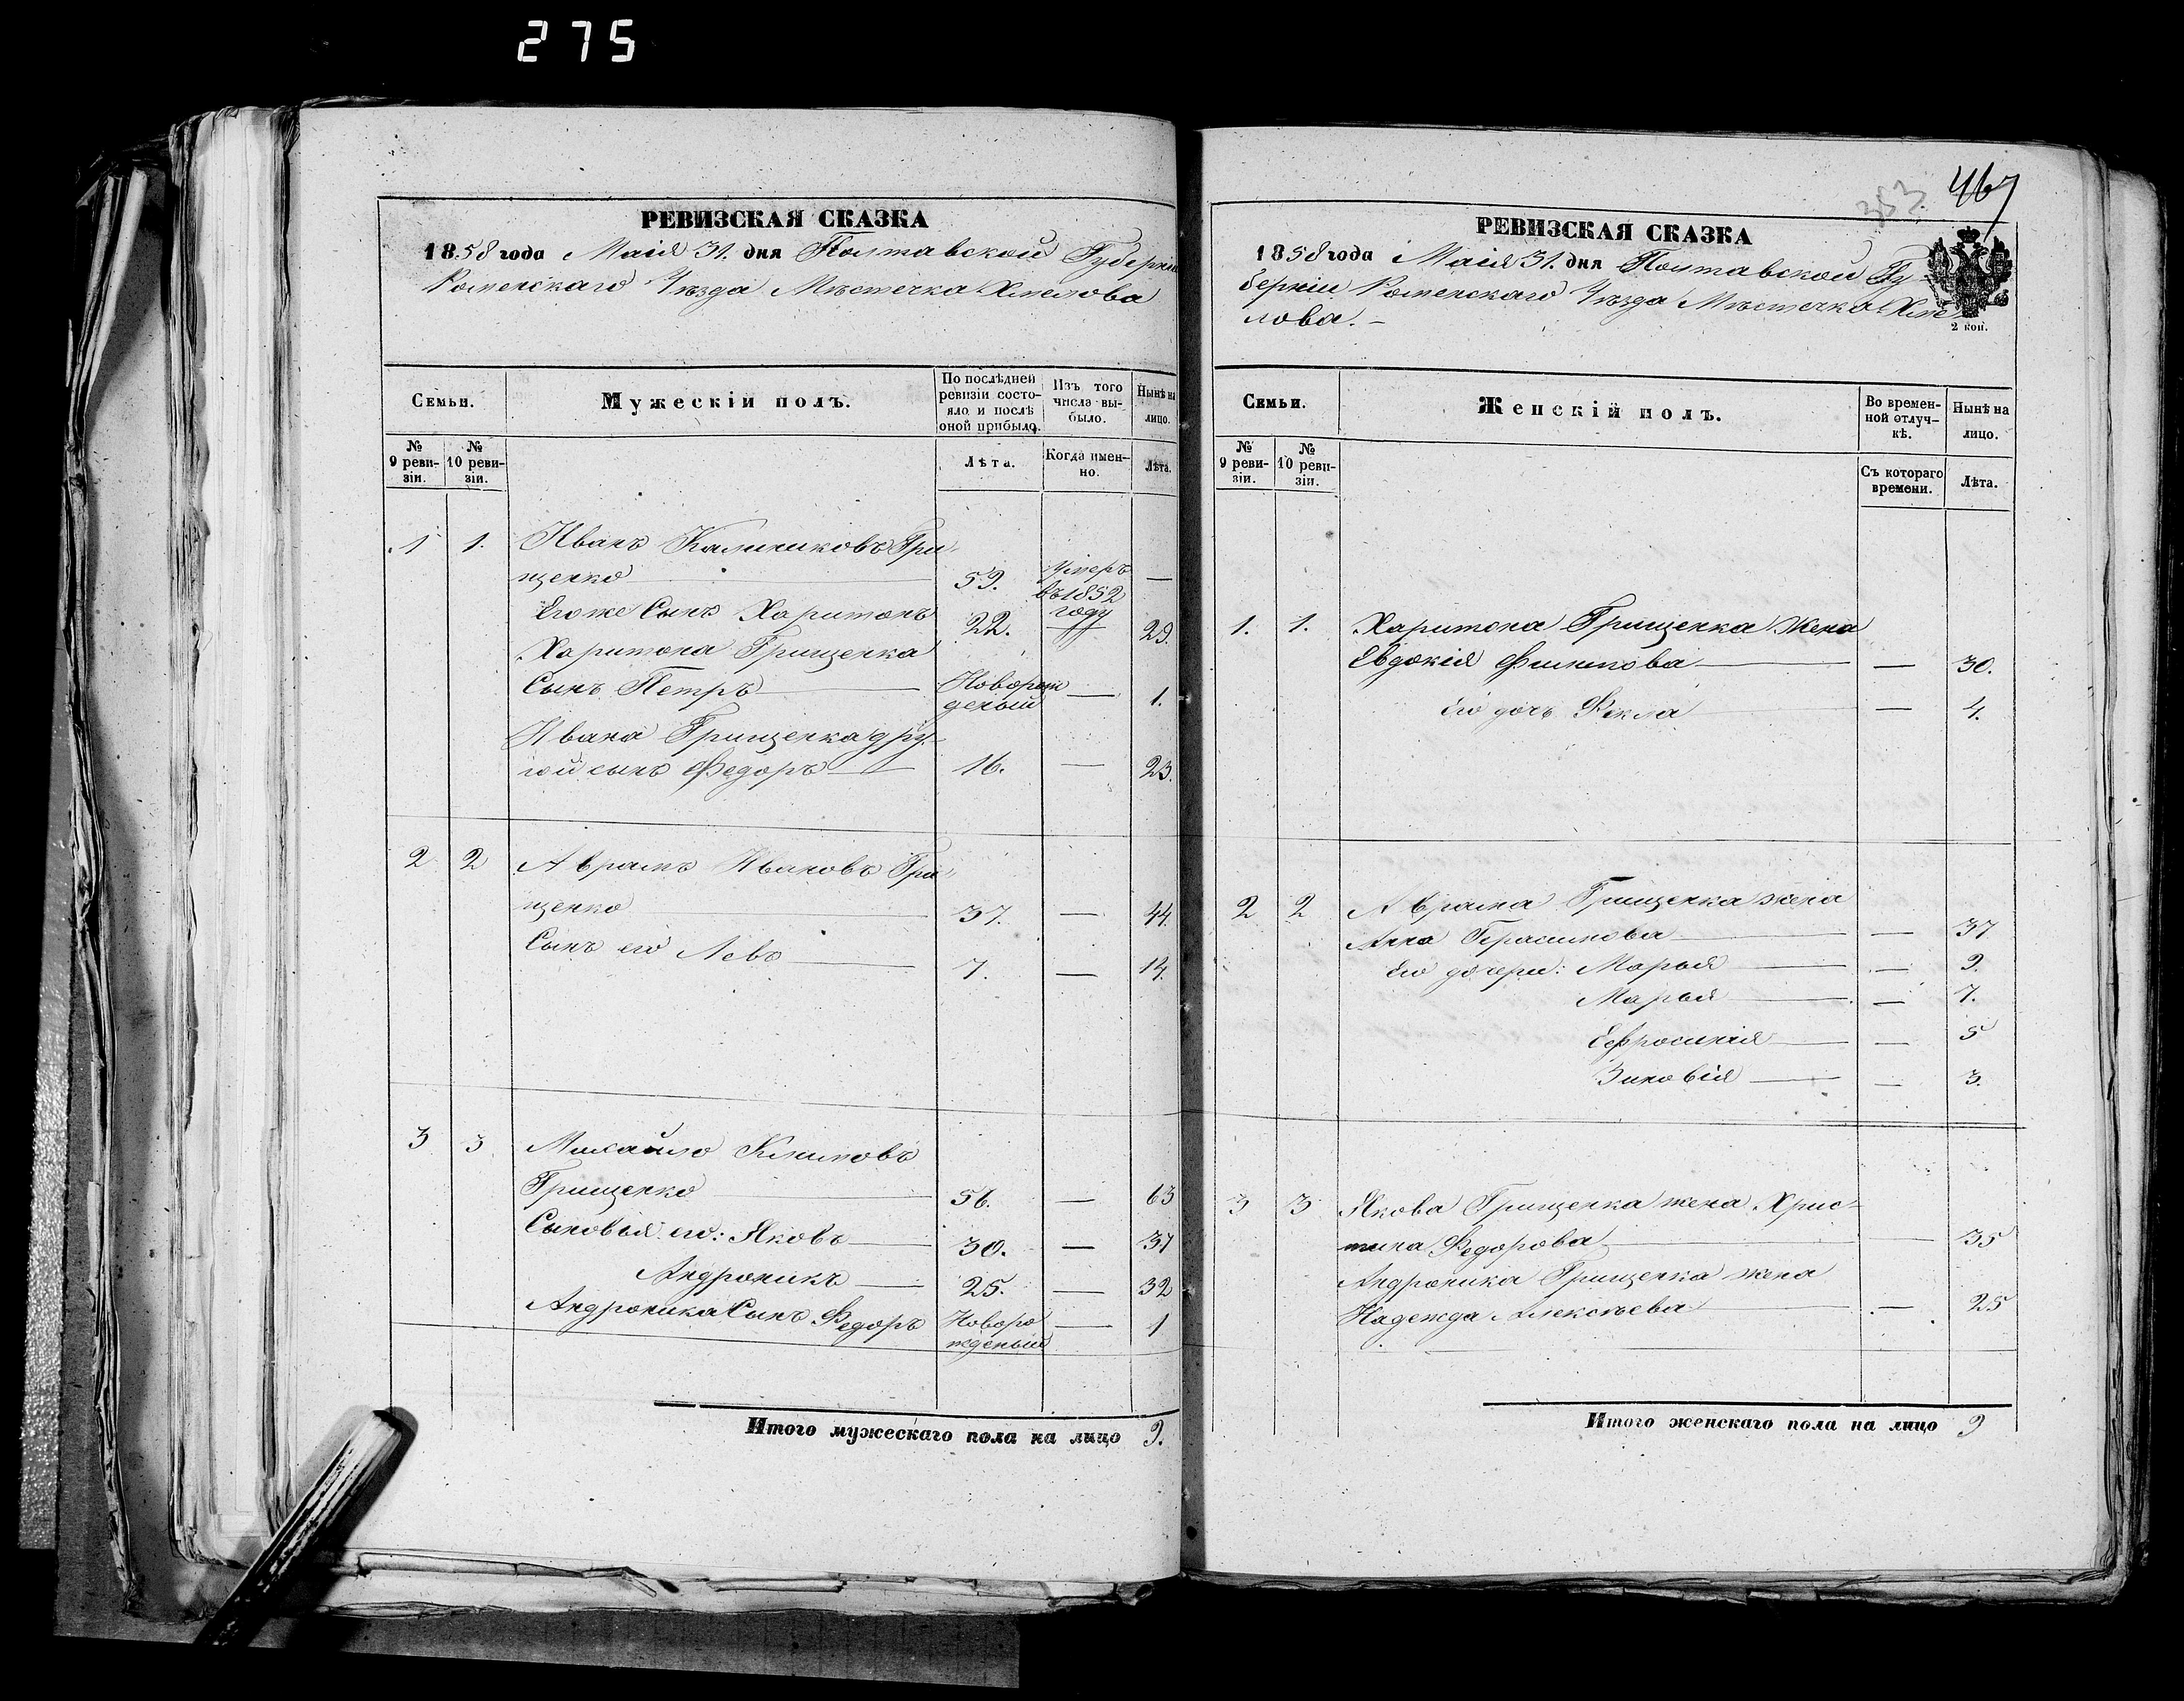 275
РЕВИЗСКАЯ СКАЗКА
1858 года Маія 31. дня Полтавской Губерніи
Роменскаго Уѣзда Мѣстечка Хмелова
Семьи.
Мужескій полъ.
По послѣдней ревизіи состояло и послѣ оной прибыло.
Изъ того числа выбыло.
Нынѣ на лицо.
№ 9 ревизіи.
№ 10 ревизіи.
Лѣта.
Когда именно.
Лѣта.
1 1. Иванъ Калиниковъ Гри-
щенко 59. умеръ въ 1852 году —
Его же Сынъ Харитонъ 22. — 29.
Харитона Грищенка
Сынъ Петръ Новорожденый — 1.
Ивана Грищенка дру-
гой сынъ Федоръ 16. — 23.
2 2 Аврамъ Ивановъ Гри-
щенко 37. — 44.
Сынъ его Левъ 7. — 14.
3 3 Михайло Климовъ
Грищенко 56. — 63
Сыновья его: Яковъ 30. — 37
Андроникъ 25. — 32
Андроника Сынъ Федоръ Новорожденый — 1
Итого мужескаго пола на лицо 9.
353 467
РЕВИЗСКАЯ СКАЗКА
1858 года Маія 31. дня Полтавской Гу-
берніи Роменскаго Уѣзда Мѣстечка Хме-
лова.
2 коп.
Семьи.
Женскій полъ.
Во временной отлучкѣ.
Нынѣ на лицо.
№ 9 ревизіи.
№ 10 ревизіи.
Съ котораго времени.
Лѣта.
1. 1. Харитона Грищенка жена
Евдокія Филипова — 30.
Его дочь Фекла — 4.
2 2 Аврама Грищенка жена
Анна Герасимова — 37
Его дочери: Марья — 9.
Марья — 7.
Ефросинія — 5
Зиновія — 3.
3 3 Якова Грищенка жена Хрис-
тина Федорова — 35
Андроника Грищенка жена
Надежда Алексѣева — 25
Итого женскаго пола на лицо 9